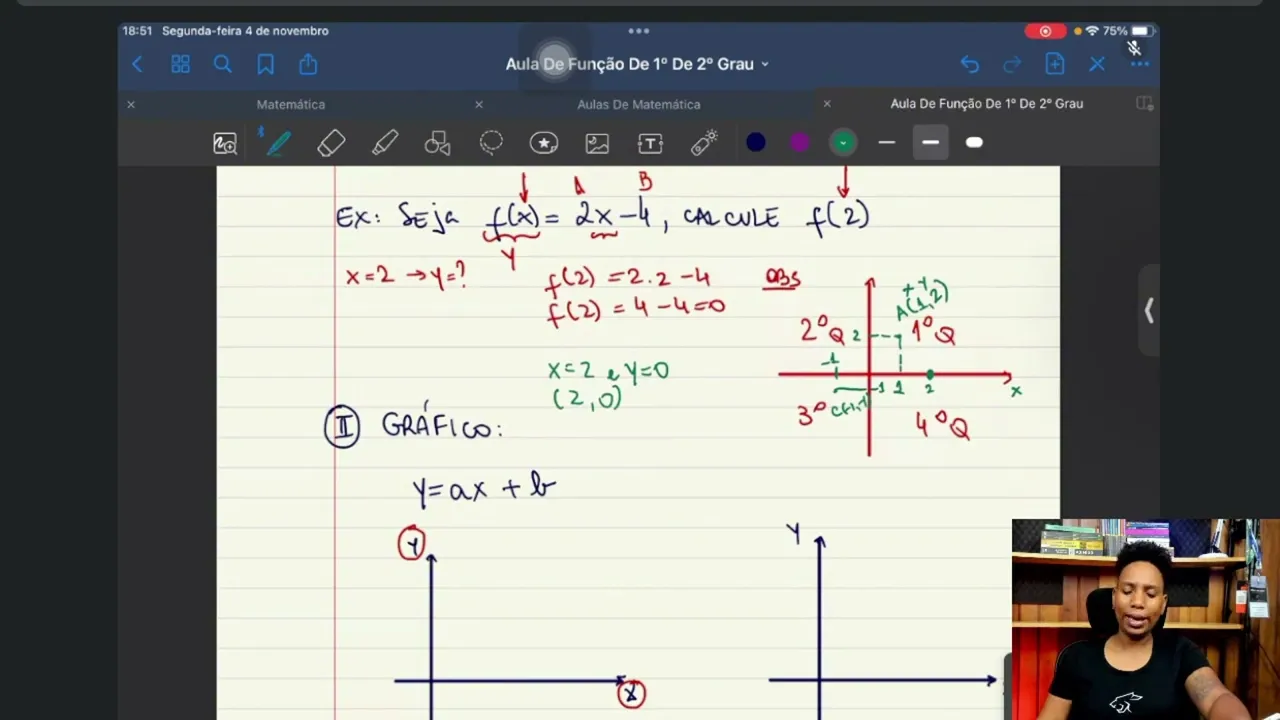 18:51 Segunda-feira 4 de novembro
75%
Aula De Função De 1º De 2º Grau
Matemática
Aulas De Matemática
Aula De Função De 1º De 2º Grau
A B
Ex: Seja f(x) = 2x - 4, CALCULE f(2)
Y
x = 2 → Y = ?
f(2) = 2.2 - 4
f(2) = 4 - 4 = 0
x = 2 e Y = 0
(2, 0)
OBS
+ +
A(1,2)
2º Q
2
1º Q
-1
-1
1
2
x
3º
C(-1,-1
4º Q
II GRÁFICO:
Y = ax + b
Y
X
Y